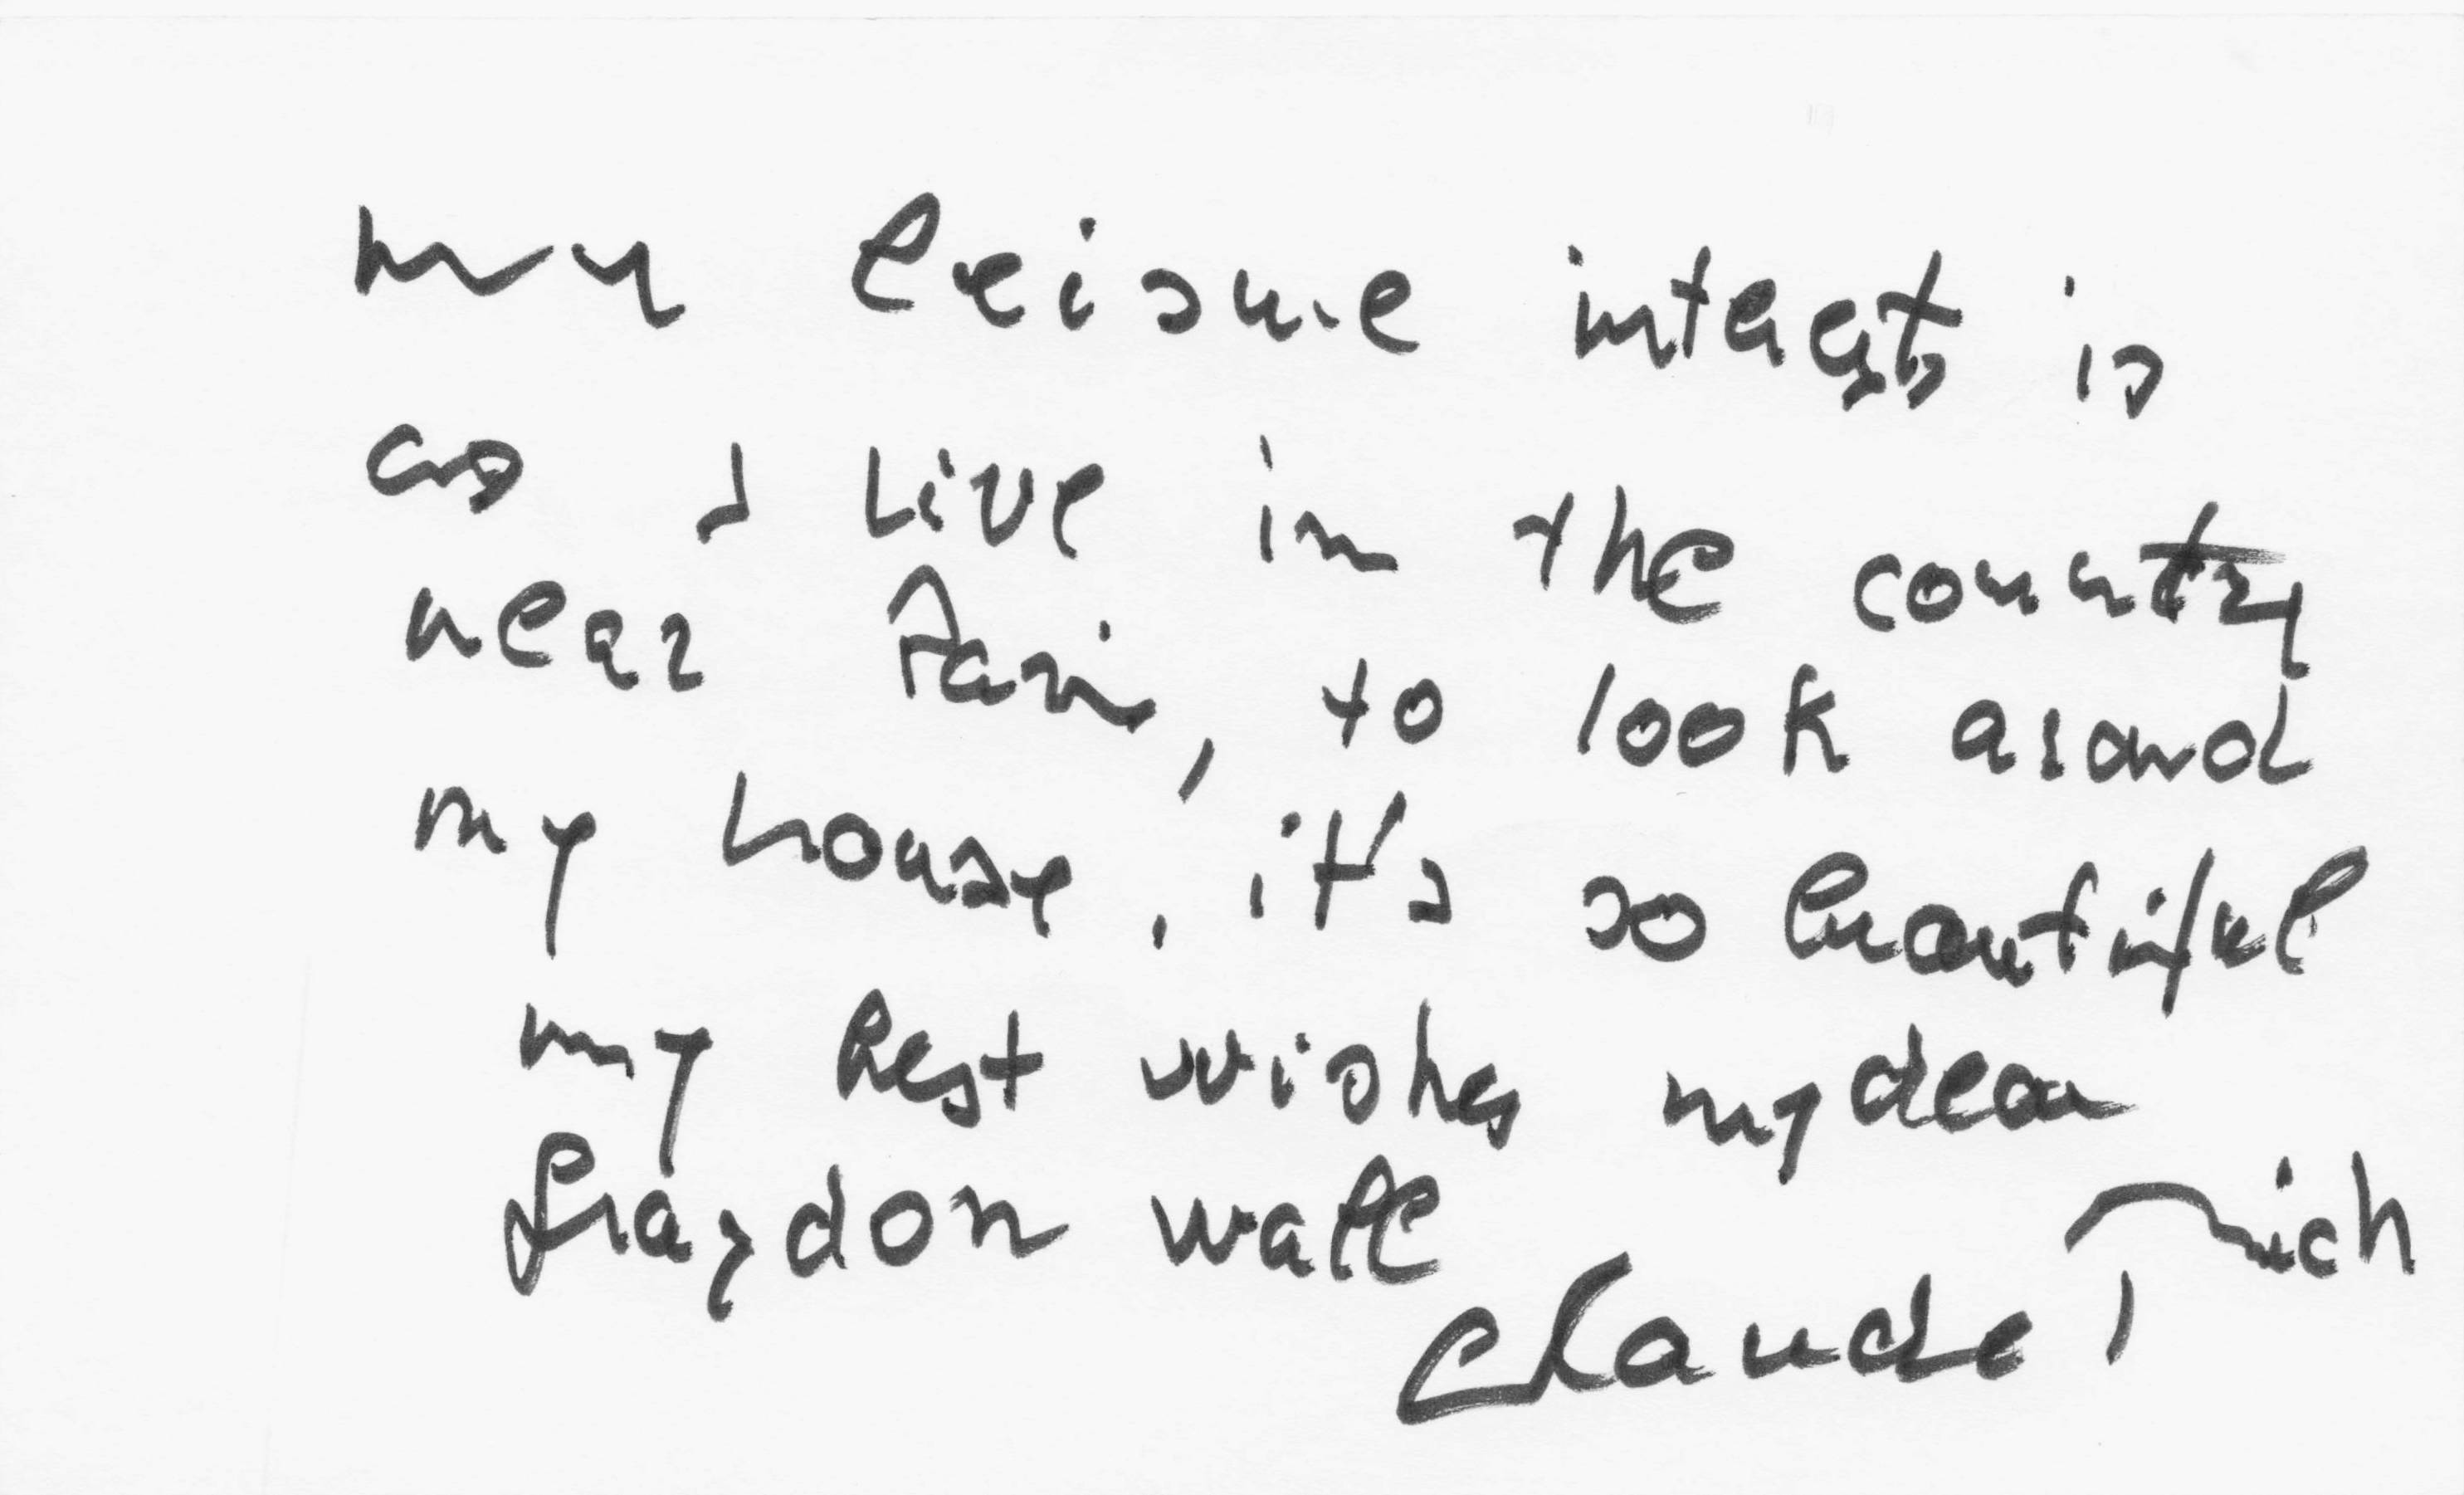 my leisure interests is
as I live in the country
near Paris, to look around
my house, it's so beautiful
my best wishes my dear
Graydon wall
Claude Rich